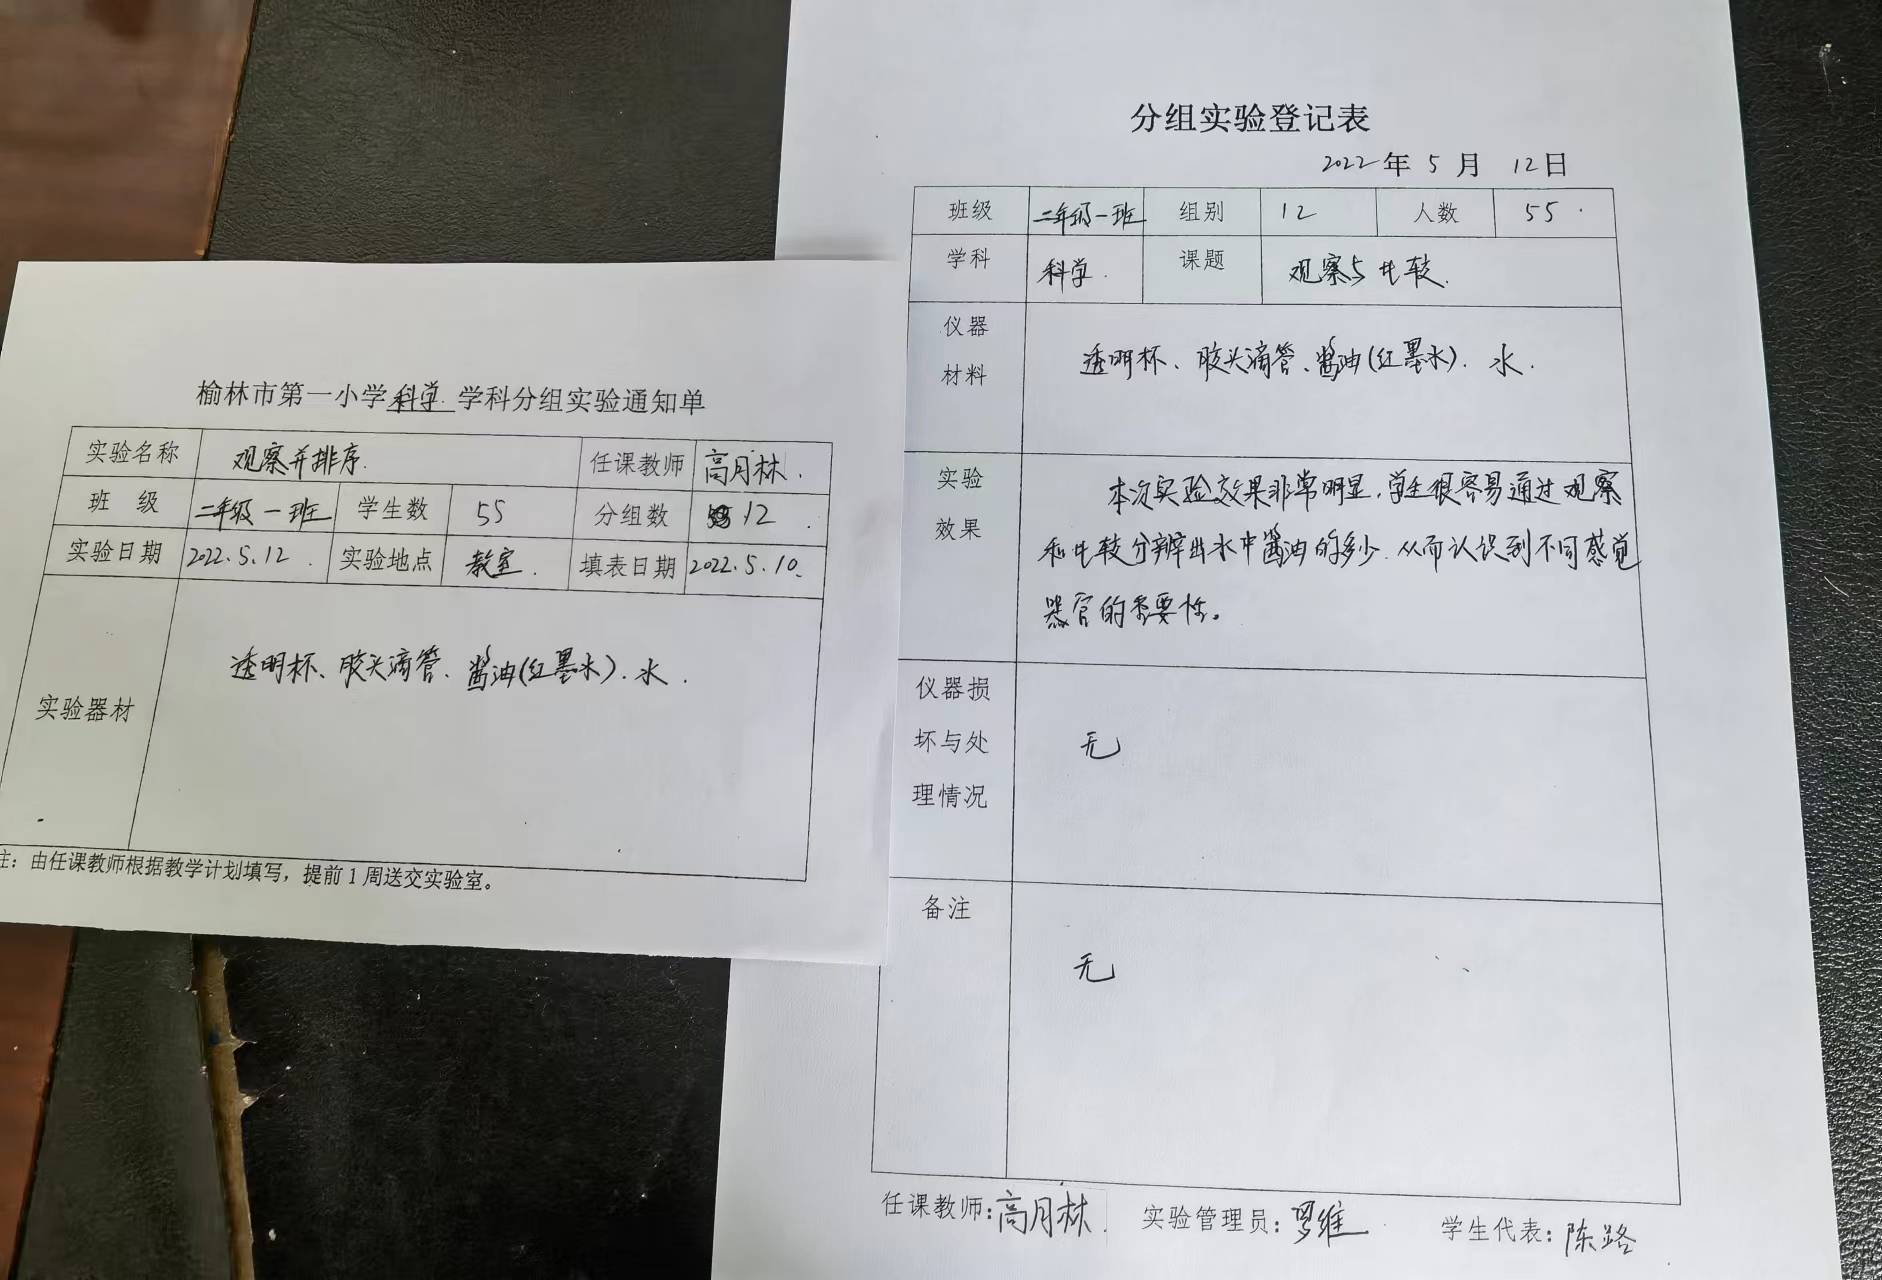 榆林市第一小学科学学科分组实验通知单
实验名称 观察并排序. 任课教师 高月林.
班 级 二年级一班 学生数 55 分组数 12.
实验日期 2022.5.12. 实验地点 教室. 填表日期 2022.5.10.
实验器材 透明杯、胶头滴管、酱油(红墨水).水.
注：由任课教师根据教学计划填写，提前1周送交实验室。
分组实验登记表
2022年 5 月 12日
班级 二年级一班 组别 12 人数 55.
学科 科学. 课题 观察与比较.
仪器
材料
透明杯、胶头滴管、酱油(红墨水).水.
实验
效果
本次实验效果非常明显,学生很容易通过观察
和比较分辨出水中酱油的多少.从而认识到不同感觉
器官的重要性。
仪器损
坏与处
理情况
无
备注
无
任课教师:高月林. 实验管理员:罗维 学生代表:陈路